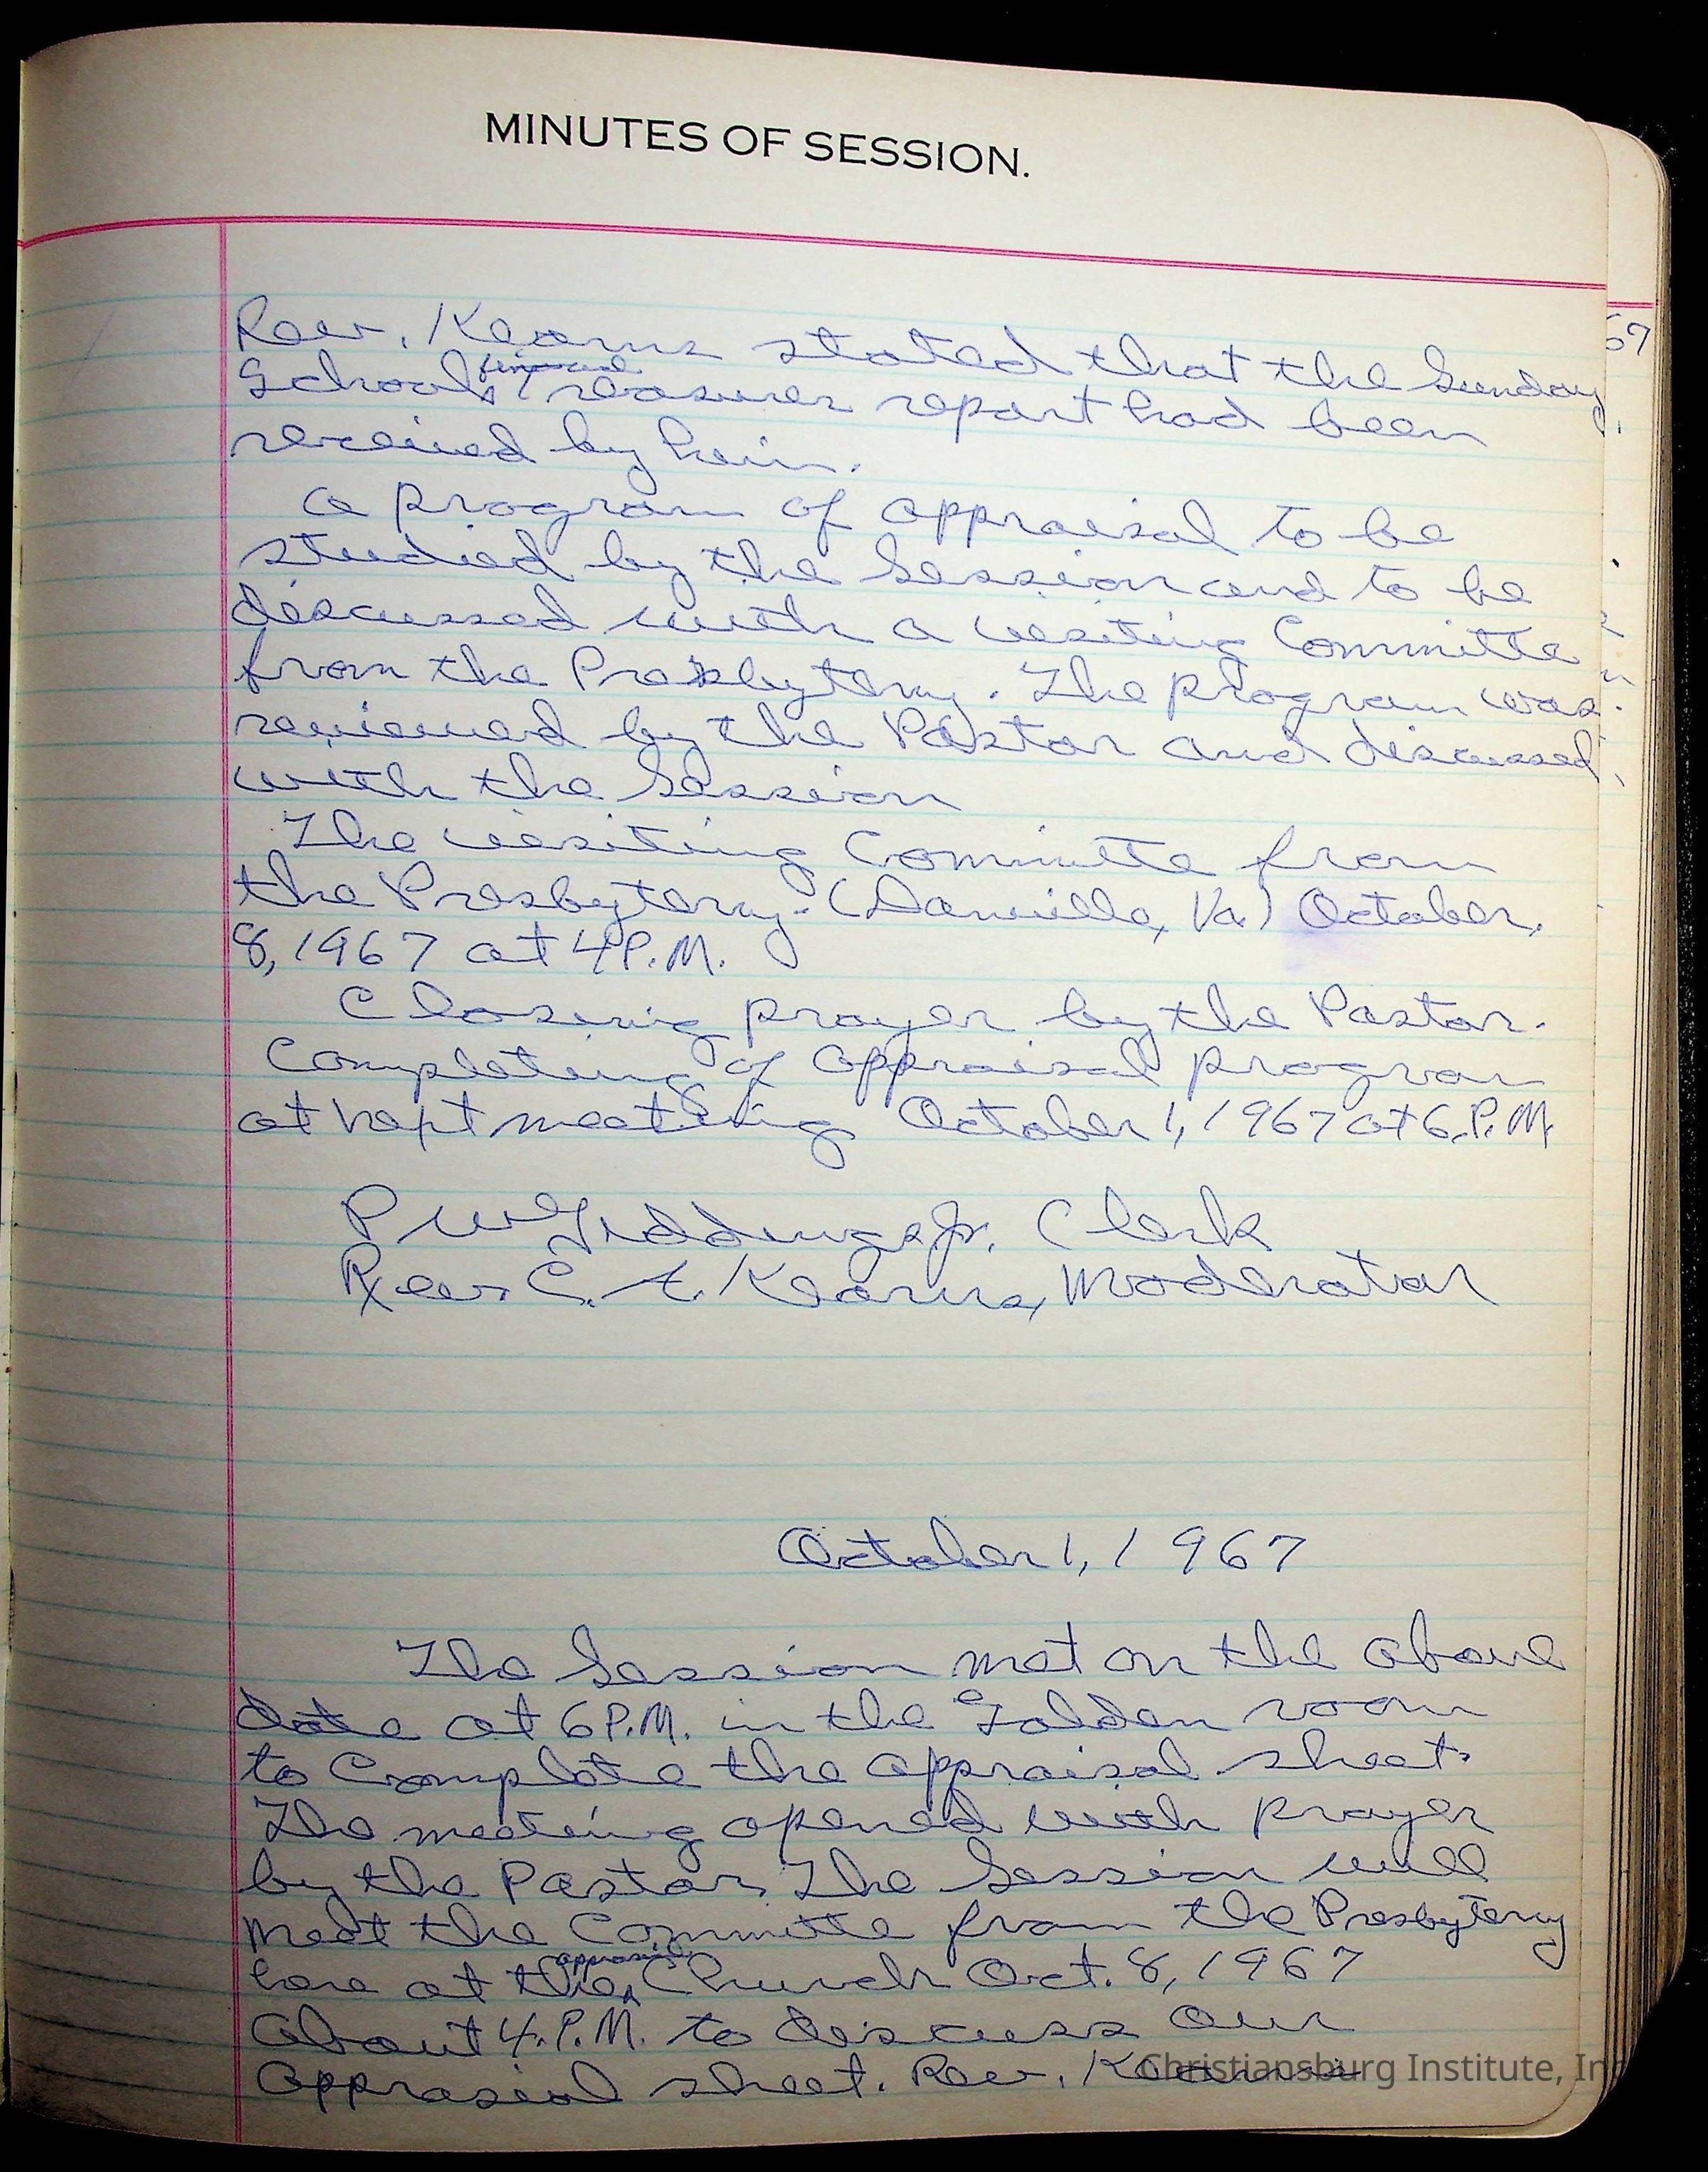 MINUTES OF SESSION.
Rev. Kearns stated that the Sunday
financial
Schools Treasurer report had been
received by him.
a program of appraisal to be
studied by the Session and to be
discussed with a visiting Committe
from the Presbytery. The program was
reviewed by the Pastor and discussed
with the Session
The visiting Committe from
the Presbytery. (Danville, Va.) October,
8, 1967 at 4 P.M.
Closing prayer by the Pastor.
Completing of appraisal program
at next meeting October 1, 1967 at 6.P.M.
P W Giddings Jr. Clerk
Rev. C. A. Kearns, Moderator
October 1, 1967
The Session met on the above
date at 6 P.M. in the Golden room
to Complete the appraisal sheet.
The meeting opened with prayer
by the Pastor. The Session will
meet the Committe from the Presbytery
appraisial
here at the Church Oct. 8, 1967
About 4.P.M. to discuss our
Apprasial sheet. Rev. Kearns
67
Christiansburg Institute, Inc